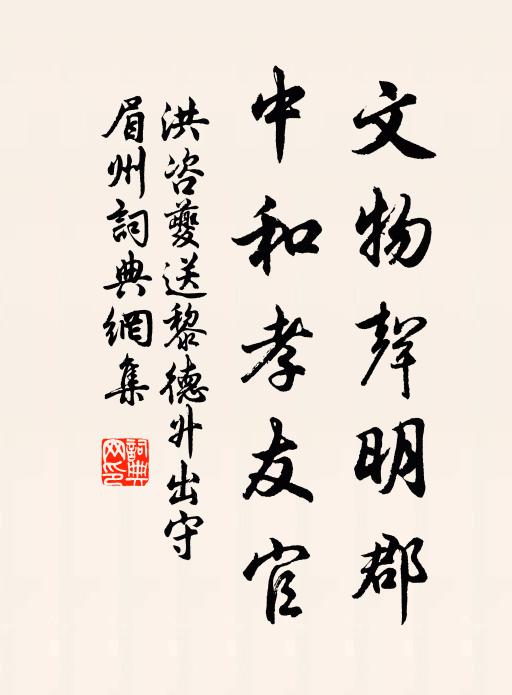 文物聲明郡
中和孝友官
洪咨夔送黎德升出守
眉州詞典網集
詞典
網印